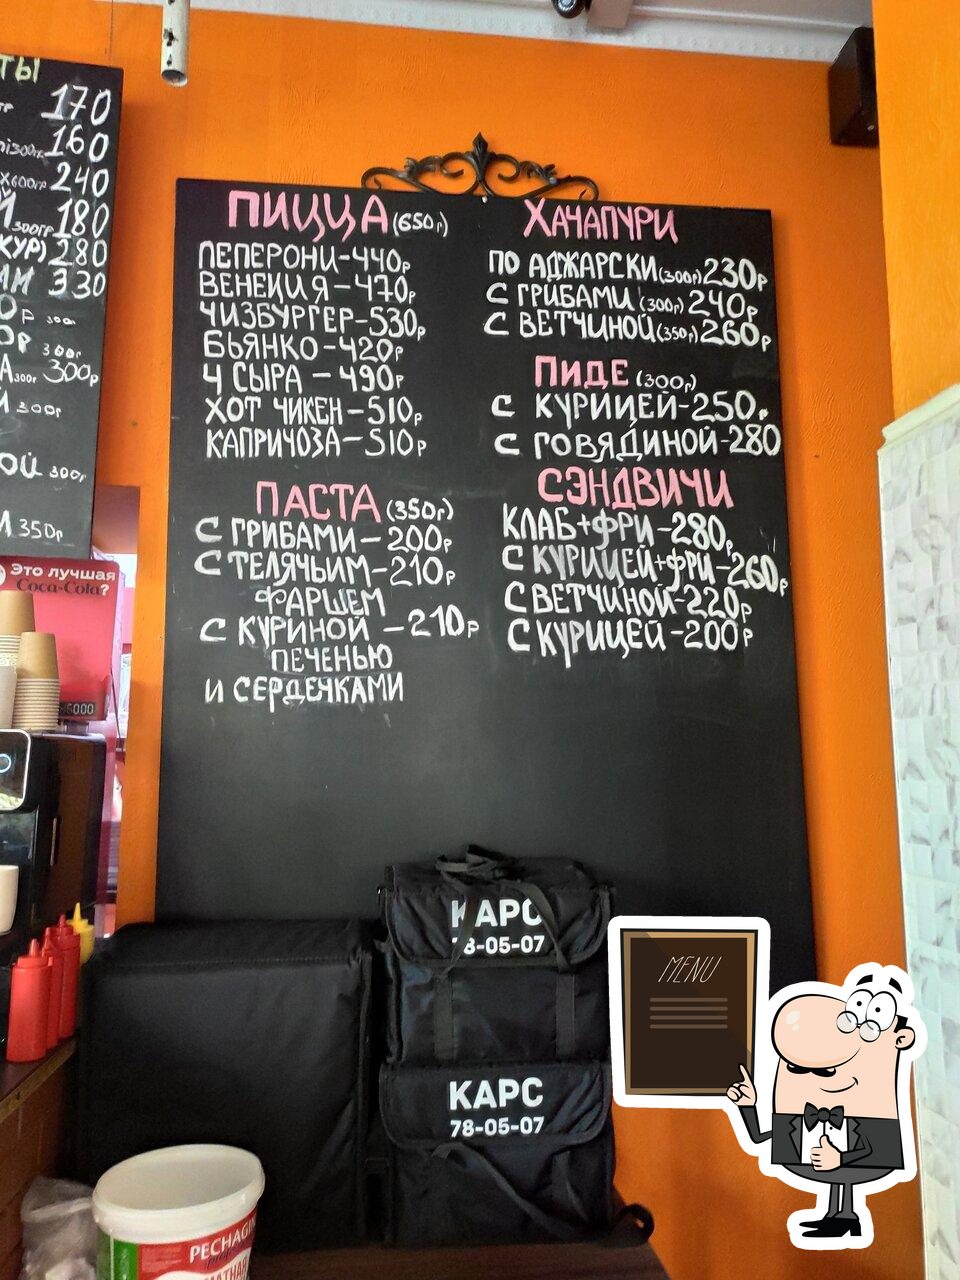 ТЫ
170
160
Х600гр 240
Й 300гр 180
КУР) 280
АМ 330
300г
300г 300р
300г
ОЙ 300г
350г
ПИЦЦА (650г)
ПЕПЕРОНИ-440р
ВЕНЕЦИЯ-470р
ЧИЗБУРГЕР-530р
БЬЯНКО-420р
4 СЫРА-490р
ХОТ ЧИКЕН-510р
КАПРИЧОЗА-510р
ПАСТА (350г)
С ГРИБАМИ-200р
С ТЕЛЯЧЬИМ-210р
ФАРШЕМ
С КУРИНОЙ-210р
ПЕЧЕНЬЮ
И СЕРДЕЧКАМИ
ХАЧАПУРИ
ПО АДЖАРСКИ (300г) 230р
С ГРИБАМИ (300г) 240р
С ВЕТЧИНОЙ (350г) 260р
ПИДЕ (300г)
С КУРИЦЕЙ-250р
С ГОВЯДИНОЙ-280
СЭНДВИЧИ
КЛАБ+ФРИ-280р
С КУРИЦЕЙ+ФРИ-260р
С ВЕТЧИНОЙ-220р
С КУРИЦЕЙ-200р
Это лучшая
Coca-Cola?
КАРС
78-05-07
КАРС
78-05-07
MENU
PECHAGIN